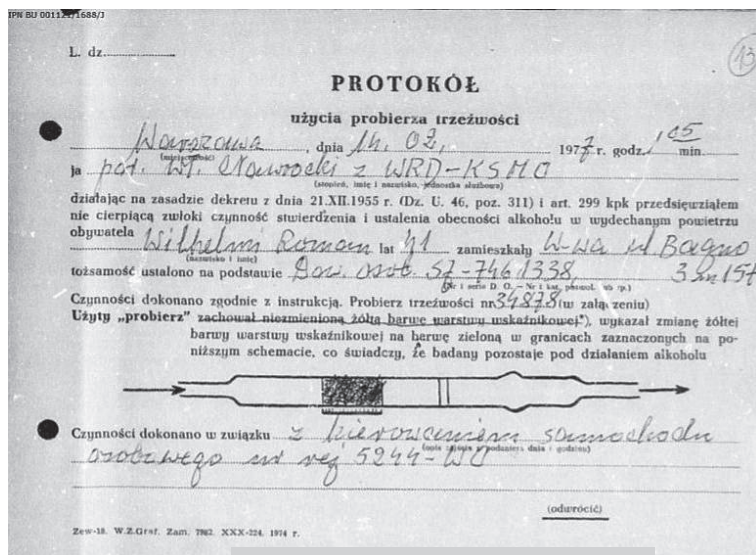 IPN BU 001121/1688/J
L. dz.
13
PROTOKÓŁ
użycia probierza trzeźwości
Warszawa, dnia 14. 02. 1977 r. godz. 1 05 min.
(miejscowość)
ja Nawrocki z WRD-KSMO
(stopień, imię i nazwisko, jednostka służbowa)
działając na zasadzie dekretu z dnia 21.XII.1955 r. (Dz. U. 46, poz. 311) i art. 299 kpk przedsięwziąłem
nie cierpiącą zwłoki czynność stwierdzenia i ustalenia obecności alkoholu w wydechanym powietrzu
obywatela Wilhelmi Roman lat 41 zamieszkały W-wa ul Bagno
(nazwisko i imię)
tożsamość ustalono na podstawie Dow. osob. 3 m 157
Czynności dokonano zgodnie z instrukcją. Probierz trzeźwości nr 34878 (w załączeniu)
Użyty „probierz” zachował niezmienioną żółtą barwę warstwy wskaźnikowej*), wykazał zmianę żółtej
barwy warstwy wskaźnikowej na barwę zieloną w granicach zaznaczonych na po-
niższym schemacie, co świadczy, że badany pozostaje pod działaniem alkoholu
Czynności dokonano w związku z kierowaniem samochodu
osobowego nr rej 5244-WU
(odwrócić)
Zew-18. W.Z.Graf. Zam. 7862. XXX-224. 1974 r.